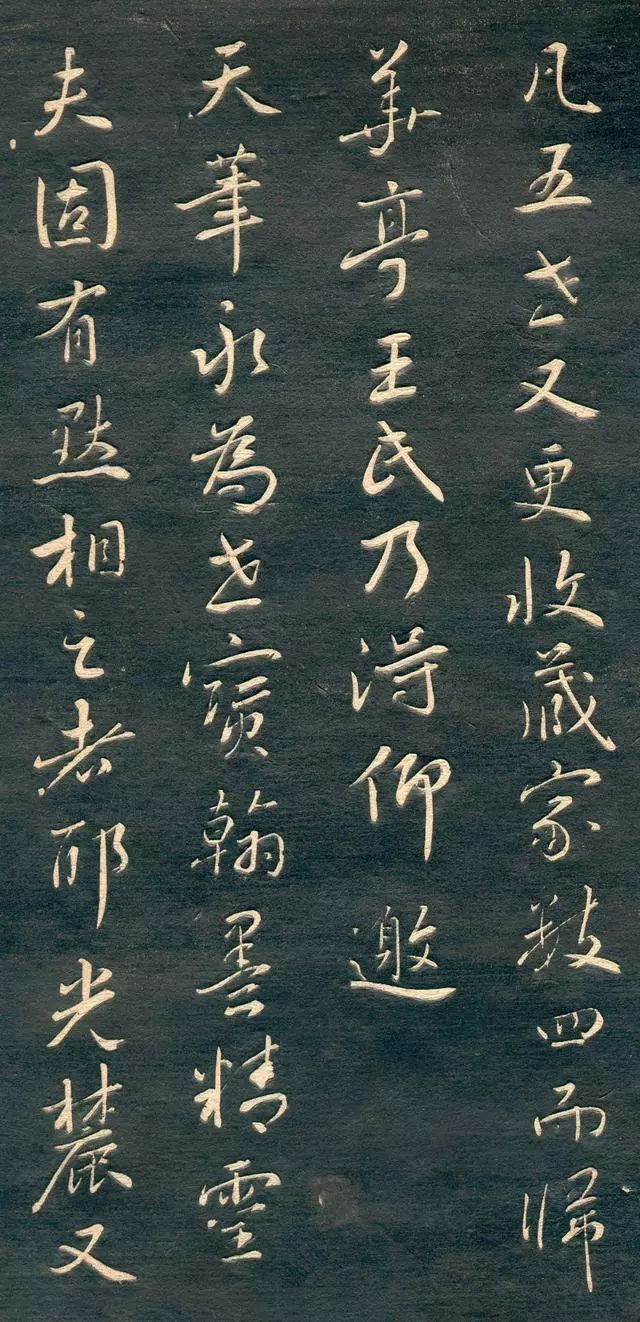 凡五世又更收藏家数四而归
华亭王氏乃得仰邀
天笔永为世宝翰墨精灵
夫固有默相之者耶光麓又